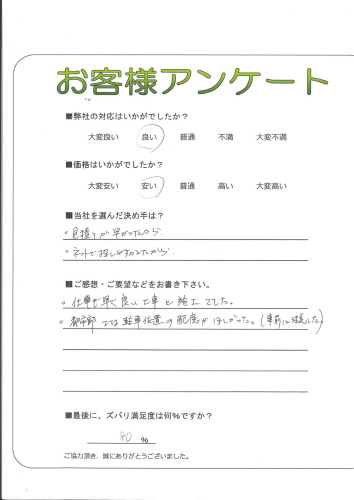 お客様アンケート
■弊社の対応はいかがでしたか?
大変良い 良い 普通 不満 大変不満
■価格はいかがでしたか?
大変安い 安い 普通 高い 大変高い
■当社を選んだ決め手は?
・見積りが早かったから
・ネットで探しやすかったから
■ご感想・ご要望などをお書き下さい。
・仕事も早く良い工事と施工でした。
・都市部では駐車位置の配慮がほしかった。(事前に
■最後に、ズバリ満足度は何%ですか?
80 %
ご協力頂き、誠にありがとうございました。